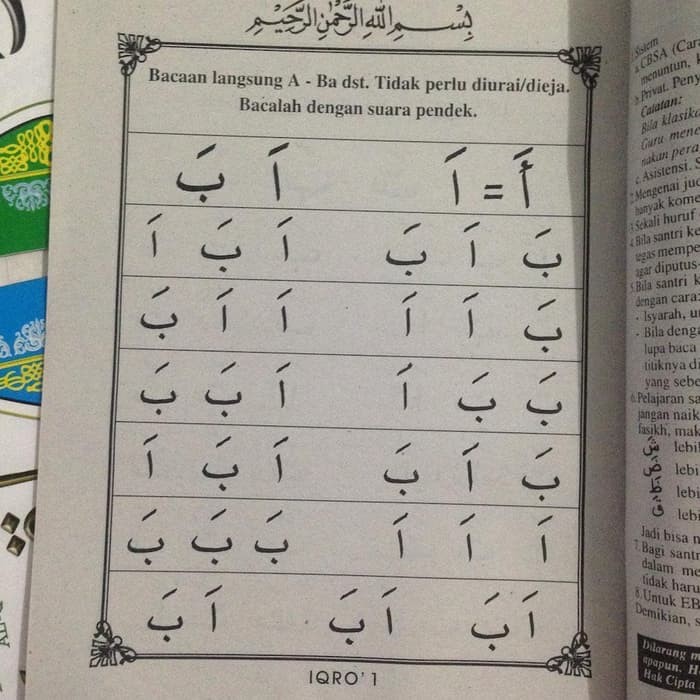 بِسْمِ اللهِ الرَّحْمٰنِ الرَّحِيْمِ
Bacaan langsung A - Ba dst. Tidak perlu diurai/dieja.
Bacalah dengan suara pendek.
أَ = اَ اَ بَ
بَ اَ بَ اَ بَ اَ
بَ اَ اَ اَ اَ بَ
بَ بَ اَ اَ بَ بَ
بَ اَ بَ اَ بَ اَ
اَ اَ اَ بَ بَ بَ
اَ بَ اَ بَ اَ بَ
IQRO' 1
Sistem
a. CBSA (Cara
menuntun, k
b. Privat. Peny
Catatan:
Bila klasika
Guru menc
nakan pera
c. Asistensi. S
2. Mengenai jud
banyak kome
3. Sekali huruf
4. Bila santri ke
tegas mempe
agar diputus-
5. Bila santri k
dengan cara:
- Isyarah, u
- Bila denga
lupa baca
titiknya di
yang sebe
6. Pelajaran sa
jangan naik
fasikh, mak
lebi
lebi
lebi
lebi
Jadi bisa n
7. Bagi santr
dalam me
tidak haru
8. Untuk EB
Demikian, s
Dilarang m
apapun. H
Hak Cipta